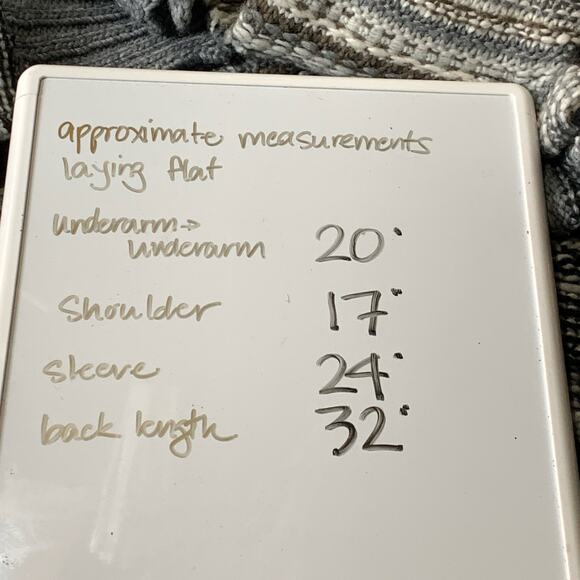 approximate measurements
laying flat
underarm →
underarm 20"
Shoulder 17"
sleeve 24"
back length 32"